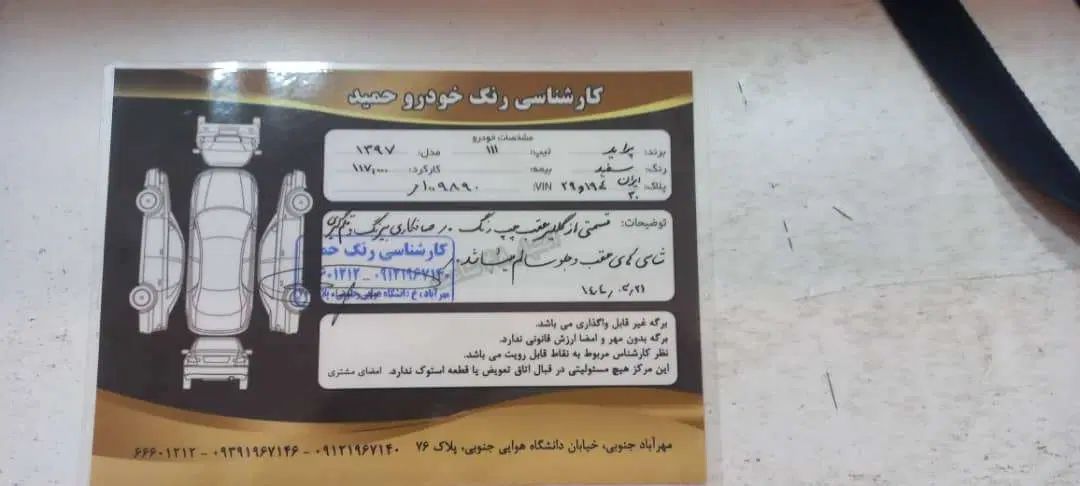 کارشناسی رنگ خودرو حمید
مشخصات خودرو
برند: پراید تیپ: ۱۱۱ مدل: ۱۳۹۷
رنگ: سفید بیمه: کارکرد: ۱۱۷,۰۰۰
پلاک: ایران ۳۰ VIN:
توضیحات: قسمتی از گلگیر عقب چپ رنگ
شاسی های عقب و جلو سالم میباشند.
کارشناسی رنگ
۰۹۱۲۱۹۶۷۱۴۰
برگه غیر قابل واگذاری می باشد.
برگه بدون مهر و امضا ارزش قانونی ندارد.
نظر کارشناس مربوط به نقاط قابل رویت می باشد.
این مرکز هیچ مسئولیتی در قبال اتاق تعویض یا قطعه استوک ندارد. امضای مشتری
مهرآباد جنوبی، خیابان دانشگاه هوایی جنوبی، پلاک ۷۶ ۰۹۱۲۱۹۶۷۱۴۰ - ۰۹۳۹۱۹۶۷۱۴۶ - ۶۶۶۰۱۲۱۲